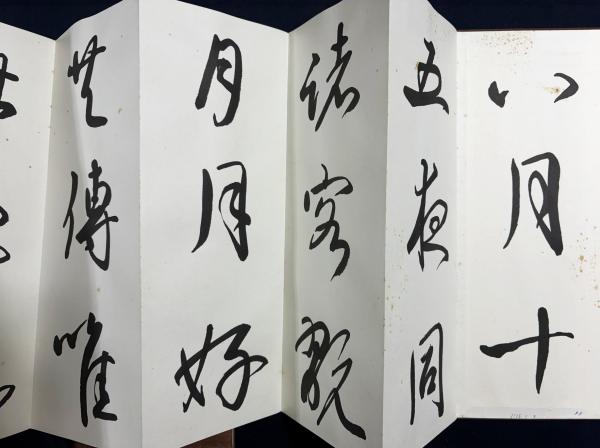 八月十
五夜同
諸客翫
月月好
共傳唯